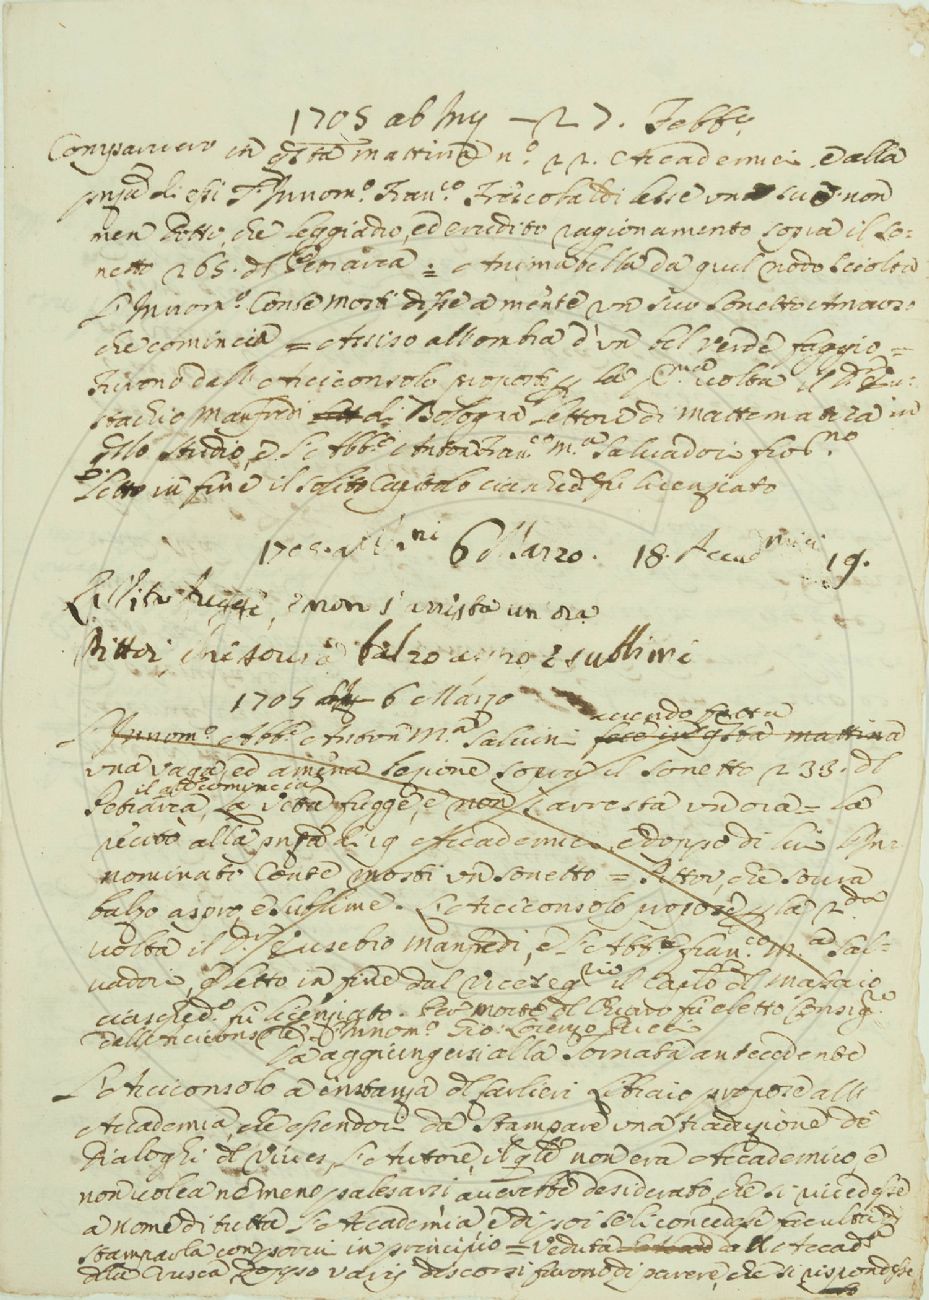 1705 ab Inc. – 27. Febb.
Comparvero in qsta mattina n.º 22. Accademici, e alla
pnza di essi l'Innom.º Fran.co Frescobaldi lesse un suo non
men dotto, che leggiadro, ed erudito ragionamento sopra il So=
netto 265. del Petrarca = Anima bella da quel nodo sciolta
L'Innom.º Conte Mosti disse a mente un suo Sonetto Amoroso
che comincia = Assiso all'ombra d'un bel verde faggio =
Furono dall'Arciconsolo proposti p la p.ma volta il Dr Eu=
stachio Manfredi di Bologna lettore di Mattematica in
qllo studio, e l'Abb.e Anton Fran.co M.a Salvadori fior.no
e letto in fine il solito Capitolo ciasched.º fu licenziato
1705. 6 Marzo. 18. Accademici 19.
La Vita fugge, e non s'arresta un ora
Pittor, che sovra balzo aspro e sublime
1705 6 Marzo
L'Innom.º Abb.e Anton M.a Salvini avendo fatta fece in qsta mattina
una vaga, ed amena lezione sopra il Sonetto 233. del
Petrarca, il q.le comincia La Vita fugge, e non s'arresta un ora = la
recitò alla pnza di 19 Accademici, e doppo di lui l'In=
nominato Conte Mosti un Sonetto = Pittor, che sovra
balzo aspro, e sublime. L'Arciconsolo propose p la 2.da
volta il Dr Eusebio Manfredi, e l'Abb.e Fran.co M.a Sal=
vadori, e letto in fine dal Viceseg.rio il Cap.lo del Massaio
ciasched.º fu licenziato. Per morte del fu eletto Consig.re
dell'Arciconsolo l'Innom.º Gio: Lorenzo Pucci
Da aggiungersi alla Tornata antecedente
L'Arciconsolo a instanza del Carlieri Libraio propose all'
Accademia, che essendovi da stampare una traduzione de
Dialoghi del Vives, l'Autore, il qle non era Accademico, e
non volea nemeno palesarsi averebbe desiderato, che si vicedesse
a nome di tutta l'Accademia e di poi se li concedesse facultà di
stamparla con porvi in principio = Veduta dall'Accad.a
della Crusca Doppo varij discorsi furono di parere, che si rispondesse